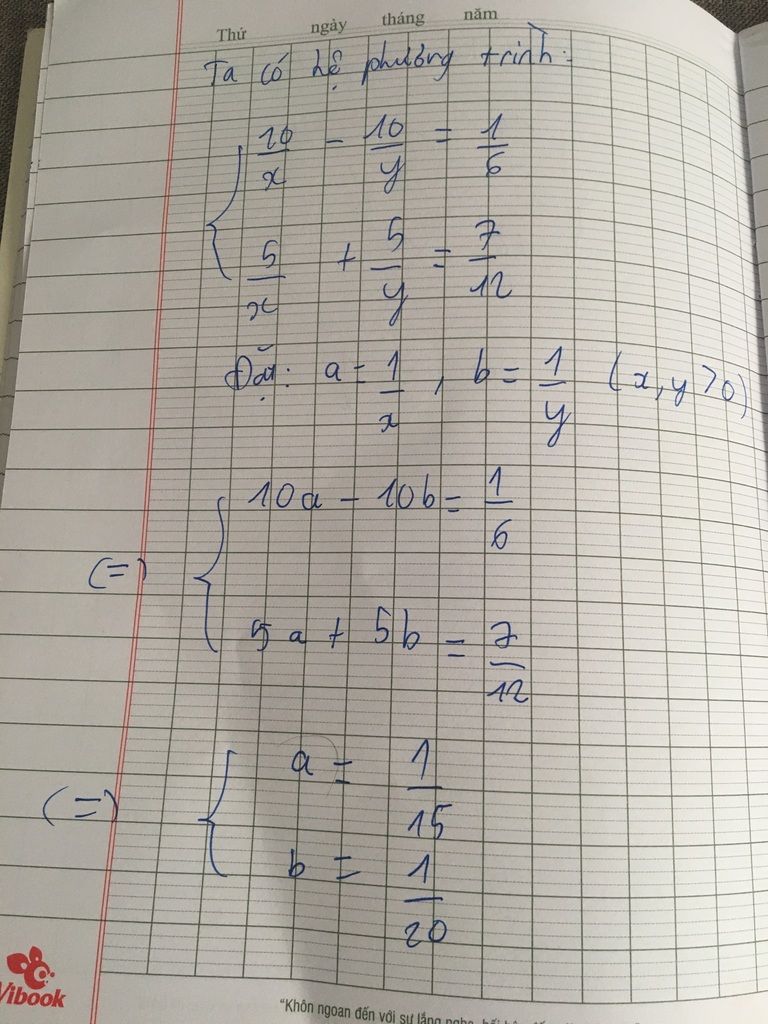 Thứ ngày tháng năm
Ta có hệ phương trình:
10/x - 10/y = 1/6
5/x + 5/y = 7/12
Đặt: a = 1/x, b = 1/y (x, y > 0)
10a - 10b = 1/6
(=)
5a + 5b = 7/12
a = 1/15
(=)
b = 1/20
Vibook
"Khôn ngoan đến với sự lắng nghe,